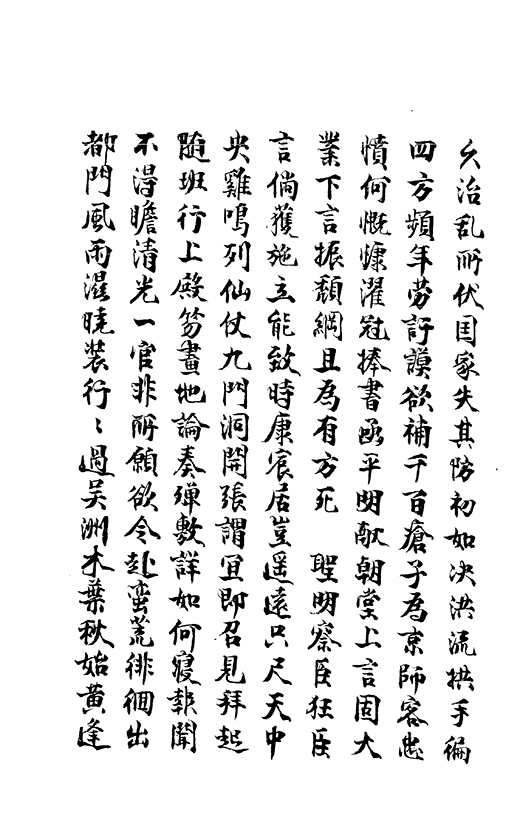 久治乱所伏国家失其防初如决洪流拱手徧
四方頻年劳訏謨欲補千百瘡子為京師客忠
憤何慨慷濯冠捧書函平明献朝堂上言固大
業下言振頽綱且為有方死 聖明察臣狂臣
言倘獲施立能致時康宸居豈遥遠只尺天中
央雞鳴列仙仗九門洞開張謂宜即召見拜起
随班行上殿笏畫地論奏殫敷詳如何寢報聞
不得瞻清光一官非所願欲令赴蛮荒徘徊出
都門風雨濕曉装行〻過吴洲木葉秋始黄逢